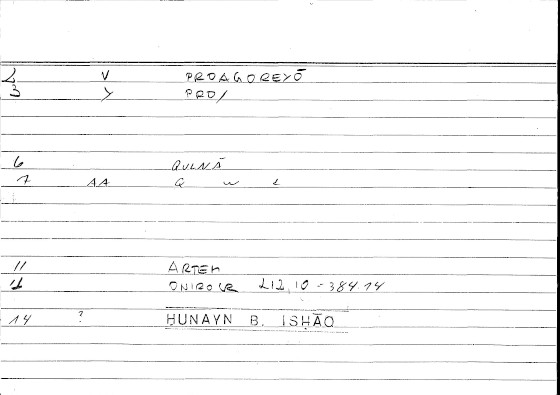 2 V PROAGOREYŌ
3 Y PRO/
6 QULNĀ
7 AA Q W L
11 ARTEM
12 ONIROCR 212,10-384,14
14 ? ḤUNAYN B. ISḤĀQ